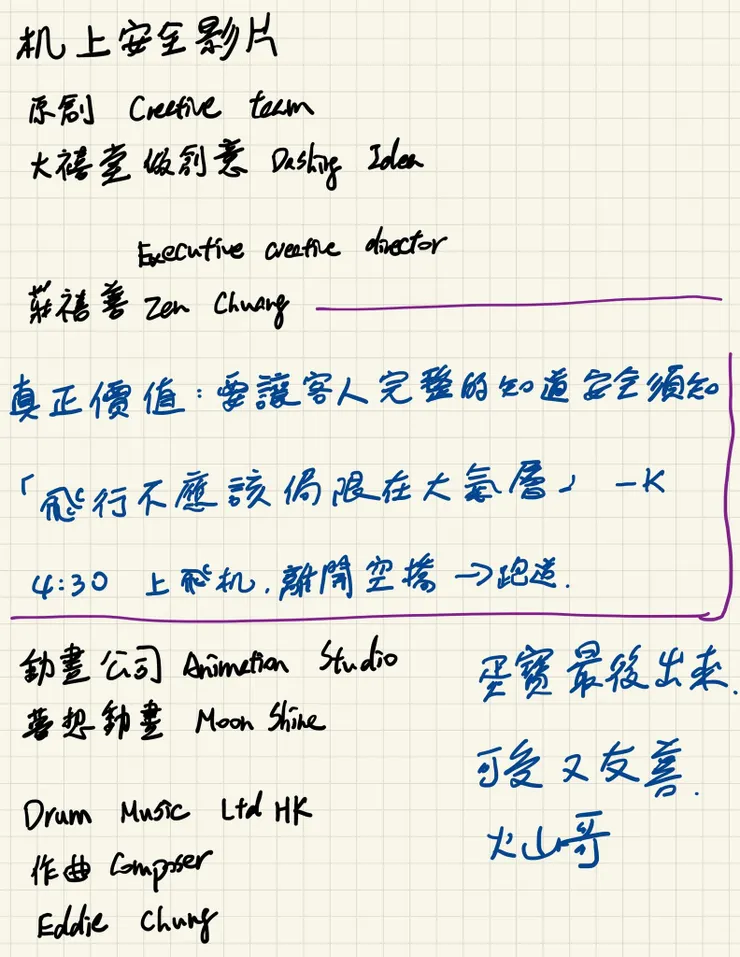 机上安全影片
原創 Creative team
大禧堂做創意 Dashing Idea
Executive creative director
莊禧善 Zen Chuang
真正價值：要讓客人完整的知道安全須知
「飛行不應該侷限在大氣層」 -K
4:30 上飛机，離開空橋 →跑道.
動畫公司 Animation Studio
夢想動畫 Moon Shine
Drum Music Ltd HK
作曲 Composer
Eddie Chung
蛋寶最後出來.
可愛又友善.
火山哥